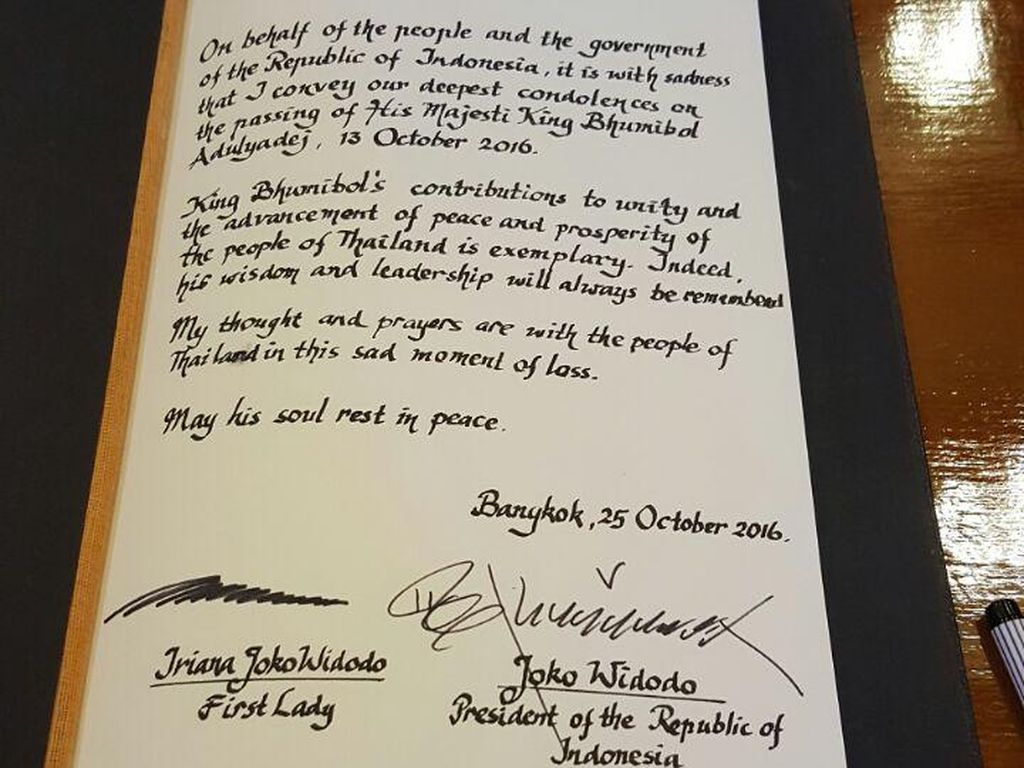 On behalf of the people and the government
of the Republic of Indonesia, it is with sadness
that I convey our deepest condolences on
the passing of His Majesti King Bhumibol
Adulyadej, 13 October 2016.
King Bhumibol's contributions to unity and
the advancement of peace and prosperity of
the people of Thailand is exemplary. Indeed,
his wisdom and leadership will always be remembered
My thought and prayers are with the people of
Thailand in this sad moment of loss.
May his soul rest in peace.
Bangkok, 25 October 2016.
Iriana Joko Widodo
First Lady
Joko Widodo
President of the Republic of
Indonesia